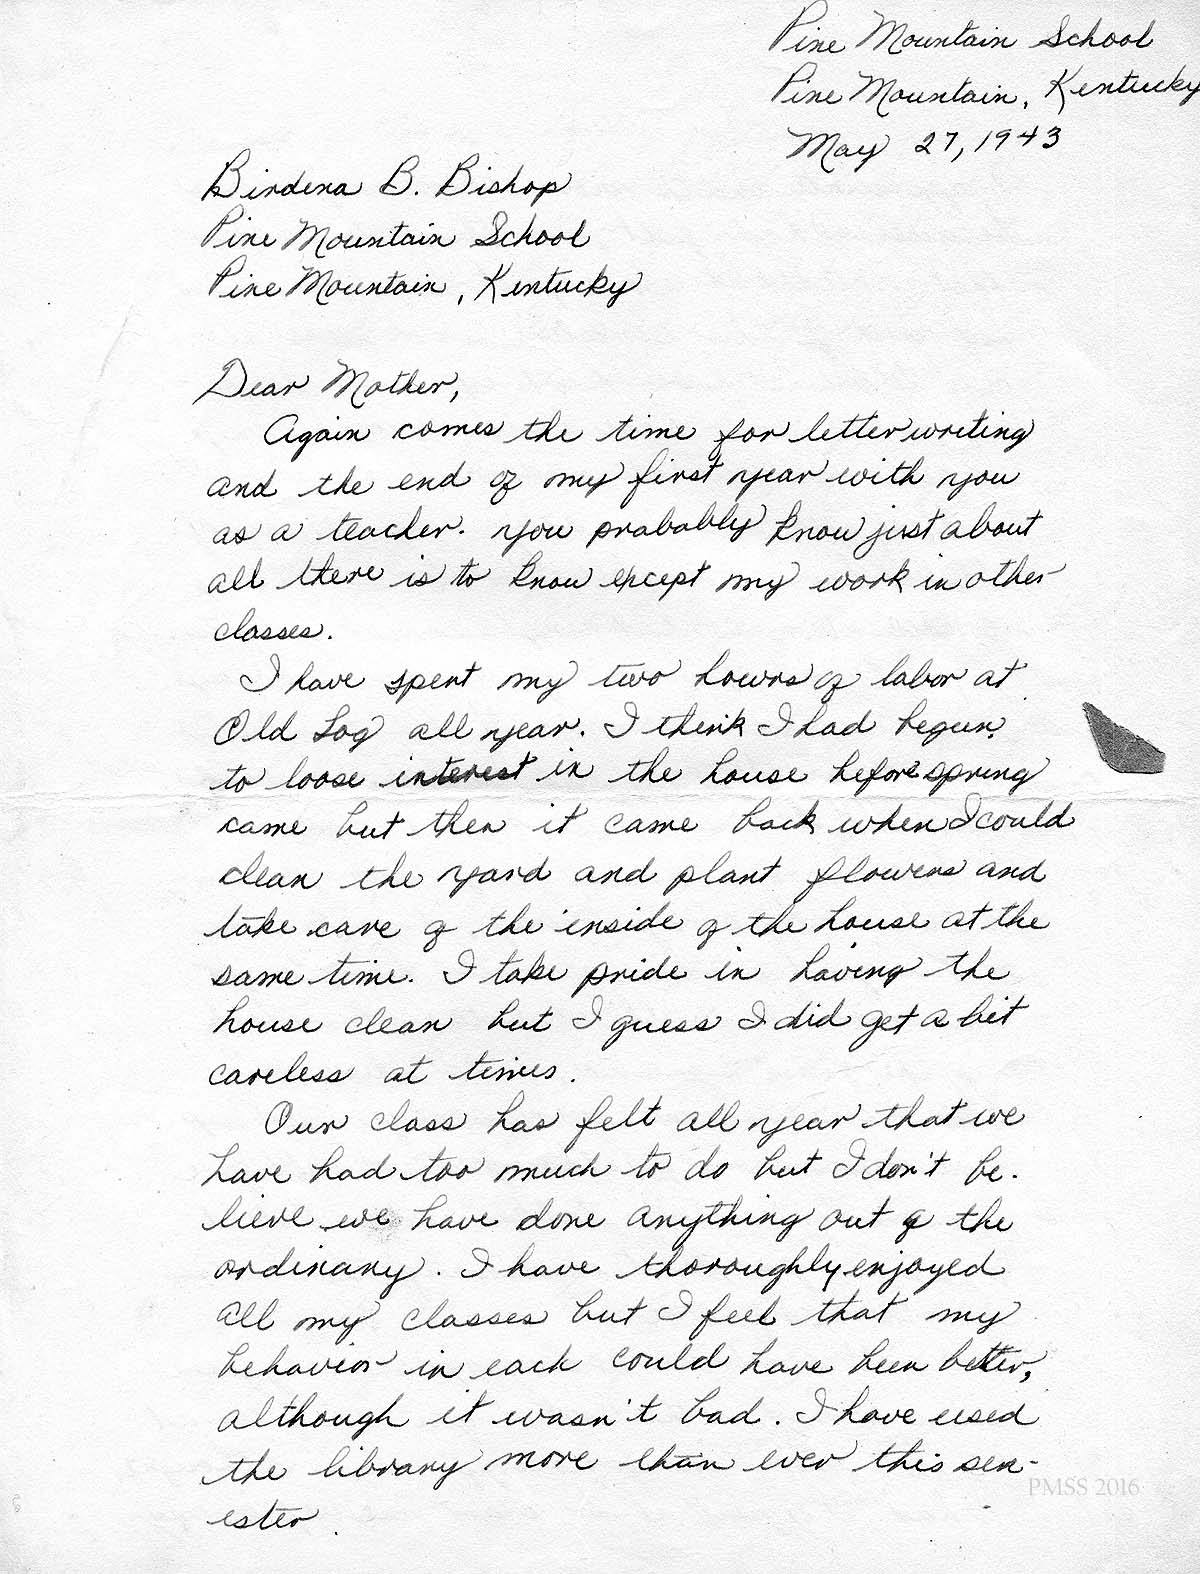 Pine Mountain School
Pine Mountain, Kentucky
May 27, 1943
Birdena B. Bishop
Pine Mountain School
Pine Mountain, Kentucky
Dear Mother,
Again comes the time for letter writing
and the end of my first year with you
as a teacher. You probably know just about
all there is to know except my work in other
classes.
I have spent my two hours of labor at
Old Log all year. I think I had begun
to loose interest in the house before spring
came but then it came back when I could
clean the yard and plant flowers and
take care of the inside of the house at the
same time. I take pride in having the
house clean but I guess I did get a bit
careless at times.
Our class has felt all year that we
have had too much to do but I don't be-
lieve we have done anything out of the
ordinary. I have thoroughly enjoyed
all my classes but I feel that my
behavior in each could have been better,
although it wasn't bad. I have used
the library more than ever this sem-
ester.
PMSS 2016